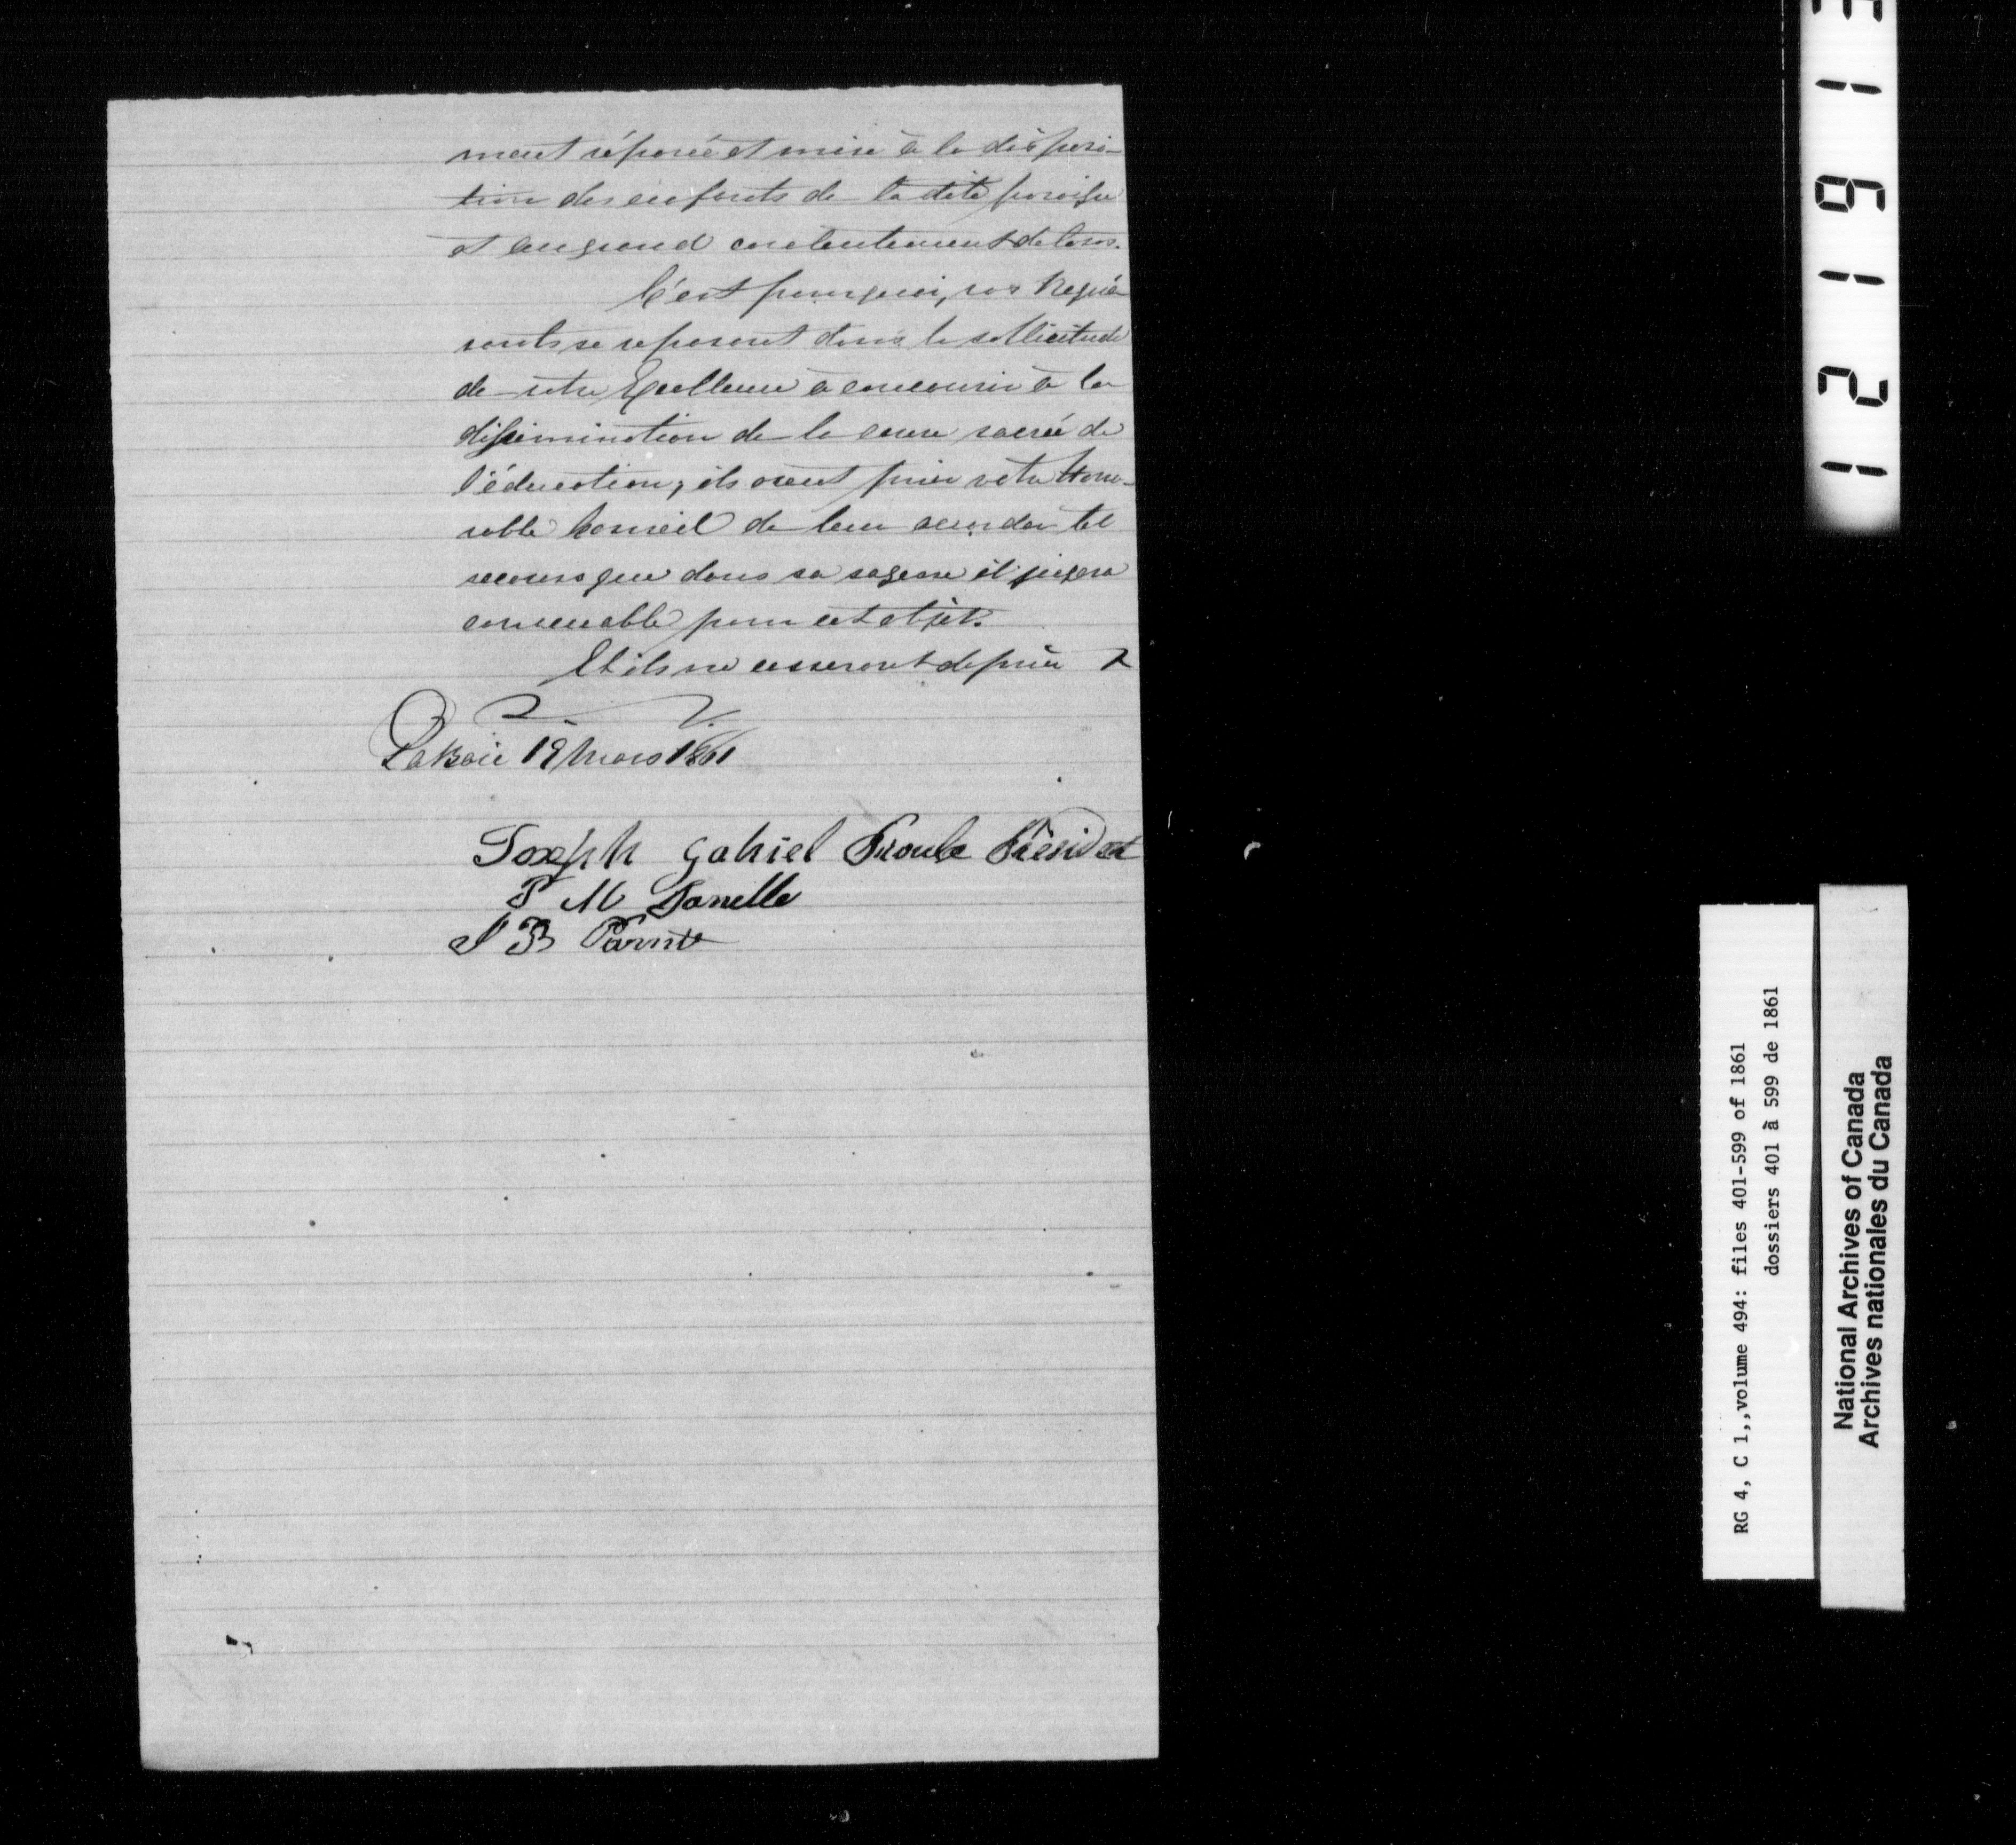 ment réparée et mise à la disposi-
tion des enfants de la dite paroisse
et au grand contentement de tous.
C'est pourquoi, vos Requé-
rants se reposent dans la sollicitude
de votre Excellence à concourir à la
dissémination de la cause sacrée de
l'éducation; ils osent prier votre Hono-
rable Conseil de leur accorder tel
secours que dans sa sagesse il jugera
convenable pour cet objet.
Et ils ne cesseront de prier
LaBaie 19 Mars 1861
Joseph Gabriel Proulx Président
P M
J B
12161
RG 4, C 1,,volume 494: files 401-599 of 1861
dossiers 401 à 599 de 1861
National Archives of Canada
Archives nationales du Canada